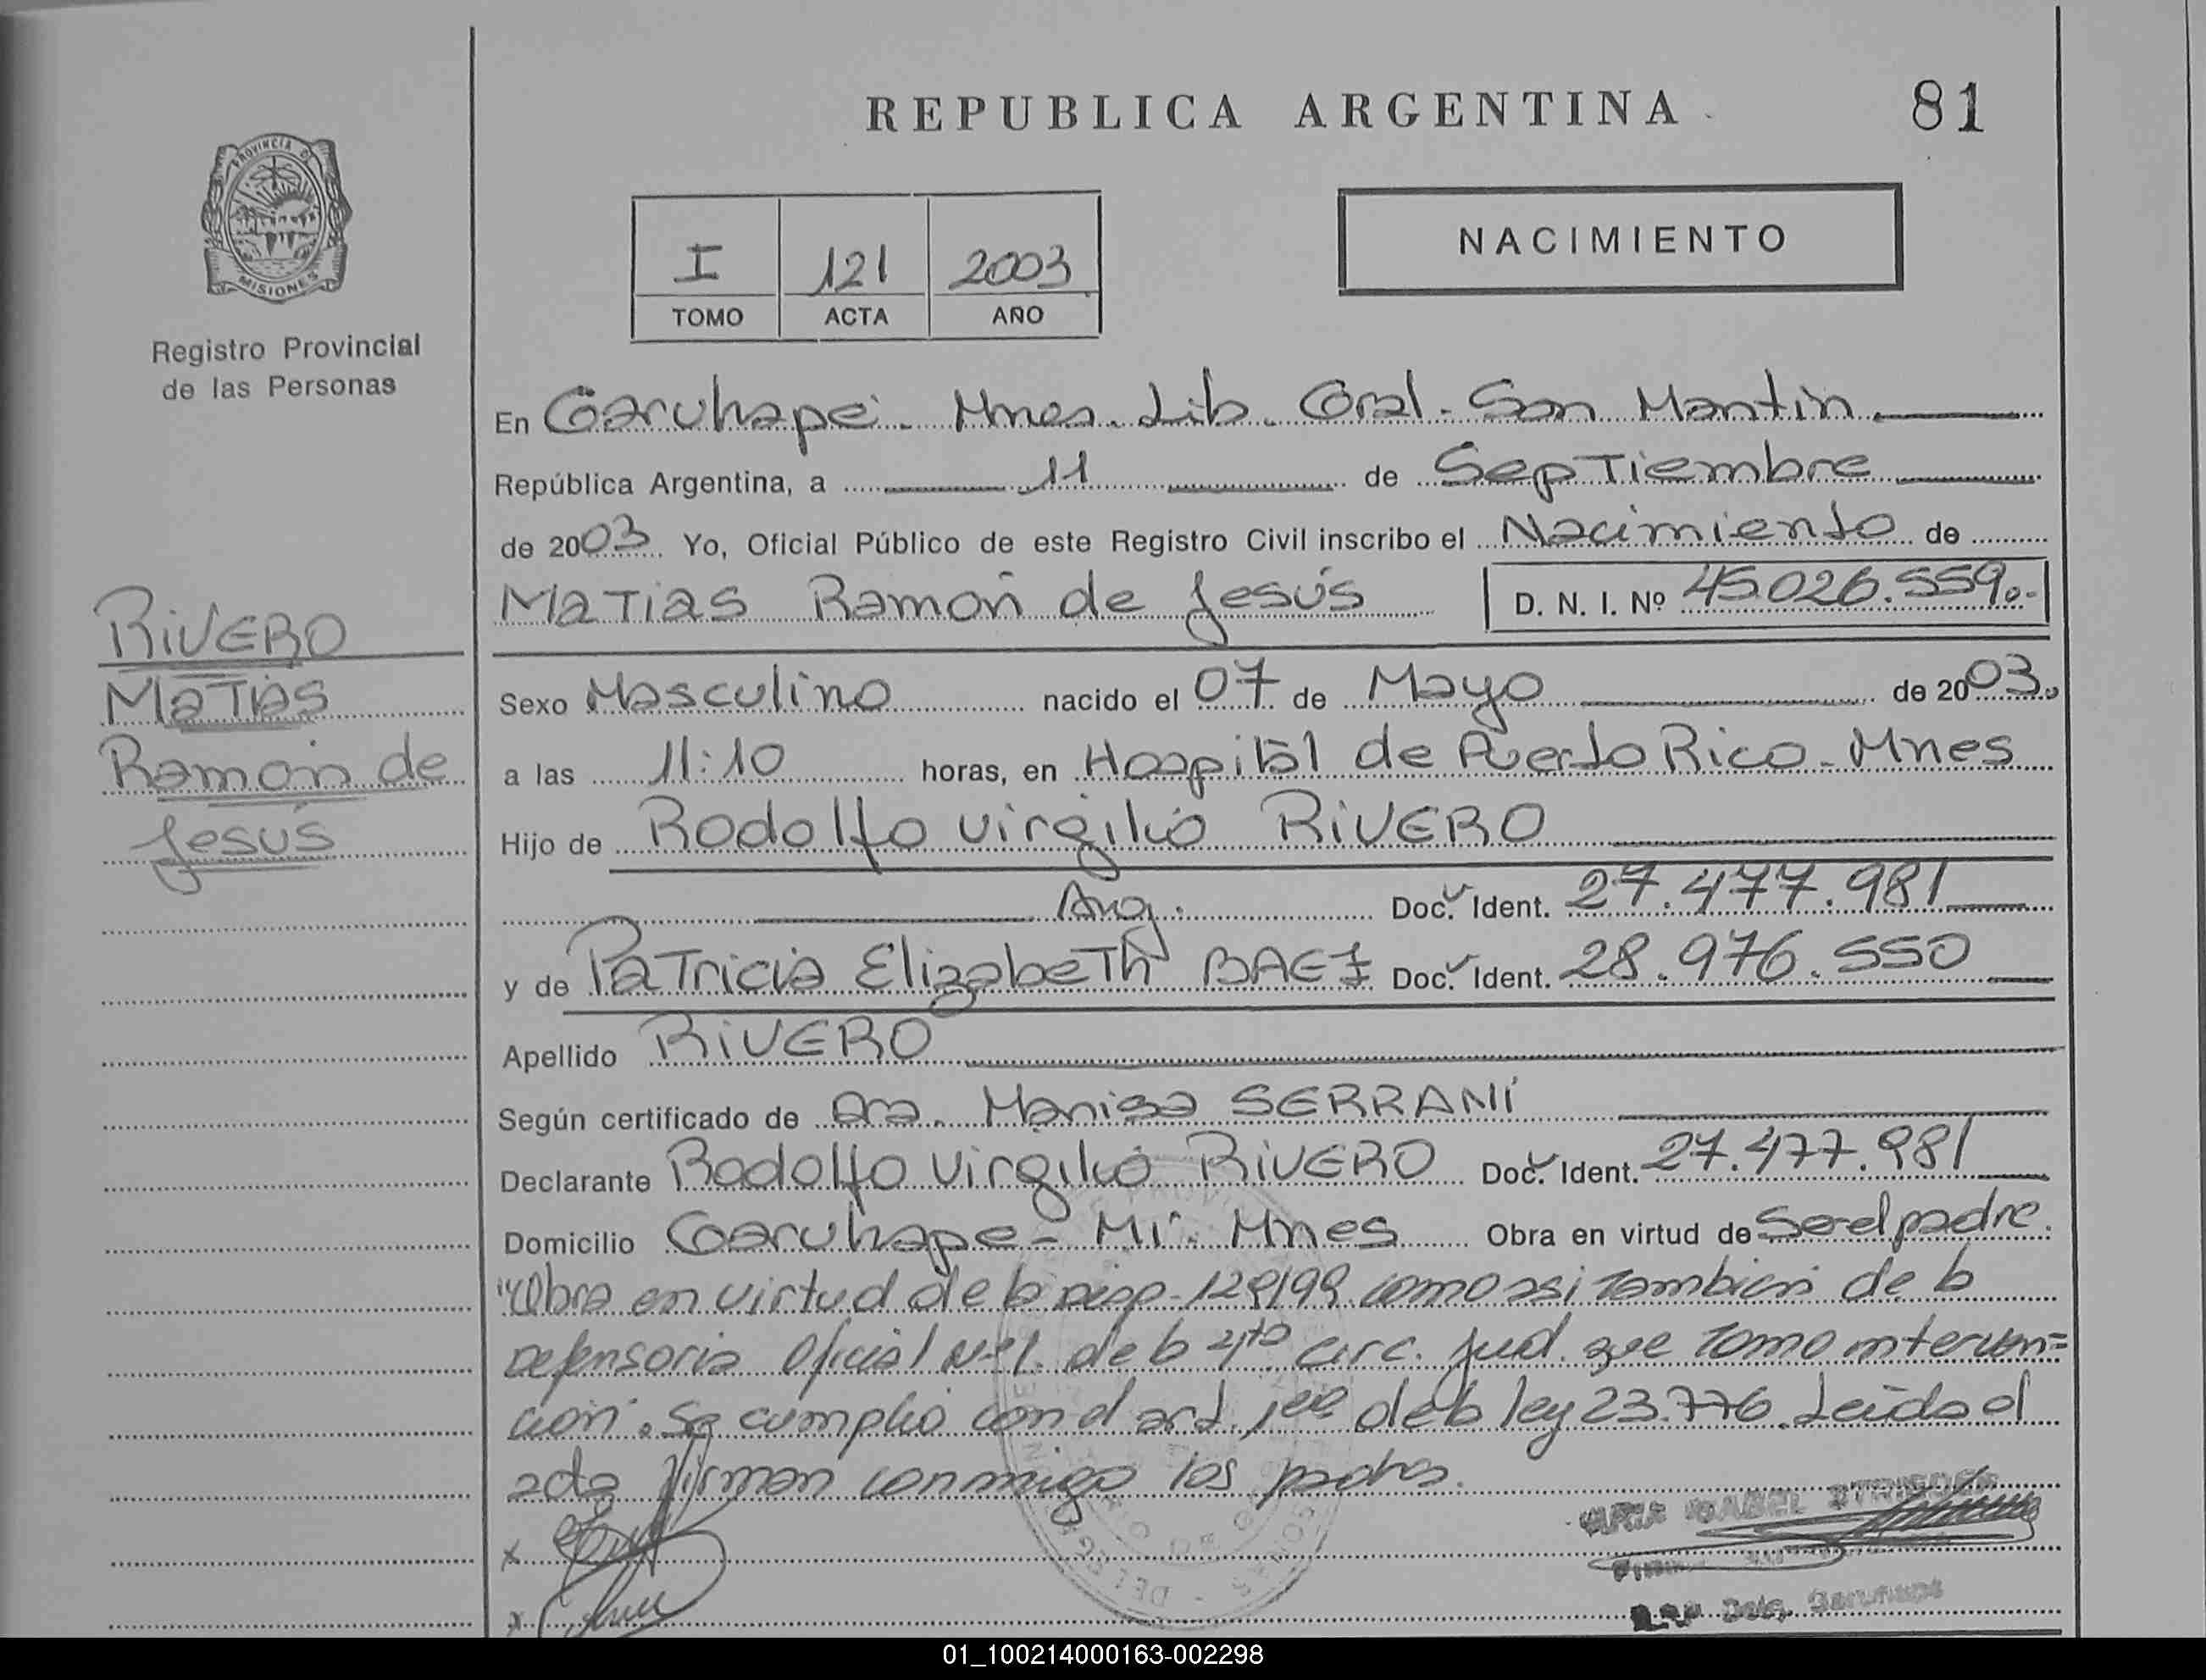 REPUBLICA ARGENTINA
81
PROVINCIA DE
MISIONES
Registro Provincial
de las Personas
I 121 2003
TOMO ACTA AÑO
NACIMIENTO
En Garuhapé. Mnes. Lib. Gral. San Martín.
República Argentina, a 11 de Septiembre
de 2003 Yo, Oficial Público de este Registro Civil inscribo el Nacimiento de
Matias Ramón de Jesús D. N. I. Nº 45.026.559.-
RIVERO
Matias
Ramón de
Jesús
Sexo Masculino nacido el 07 de Mayo de 2003.
a las 11:10 horas, en Hospital de Puerto Rico - Mnes
Hijo de Rodolfo Virgilio RIVERO
Arg. Doc. Ident. 27.477.981
y de Patricia Elizabeth BAEZ Doc. Ident. 28.976.550
Apellido RIVERO
Según certificado de Dra. Marisa SERRANI
Declarante Rodolfo Virgilio RIVERO Doc. Ident. 27.477.981
Domicilio Garuhape - Mí. Mnes Obra en virtud de Ser el padre.
"Obra en virtud de la Disp. 129/99 como asi tambien de la
Defensoria Oficial Nº1. de la 4ta circ. Jud. que tomo interven=
ción". Se cumplió con el art. 1ero de la ley 23.776. Leída el
acta firman conmigo los padres.
ISABEL
Deleg. Garuhape
01_100214000163-002298